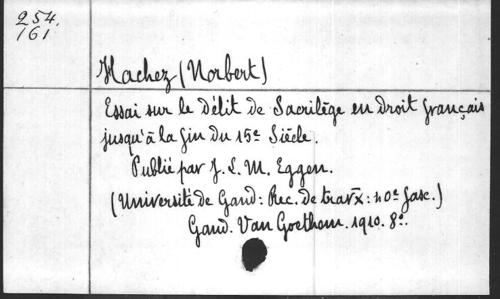 254.
161
Hachez (Norbert)
Essai sur le délit de Sacrilège en droit français
jusqu'à la fin du 15e Siècle.
Publié par J. L. M. Eggen.
(Université de Gand: Rec. de trav͞x: 40e fasc.)
Gand. Van Goethem. 1910. 8o.